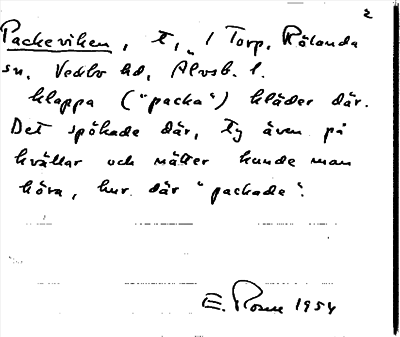 2
Packeviken, t, 1 Torp, Rölanda
sn, Vedbo hd, Älvsb. l.
klappa ("packa") kläder där.
Det spökade där, ty även på
kvällar och nätter kunde man
höra, hur där "packade".
E. Rosen 1954